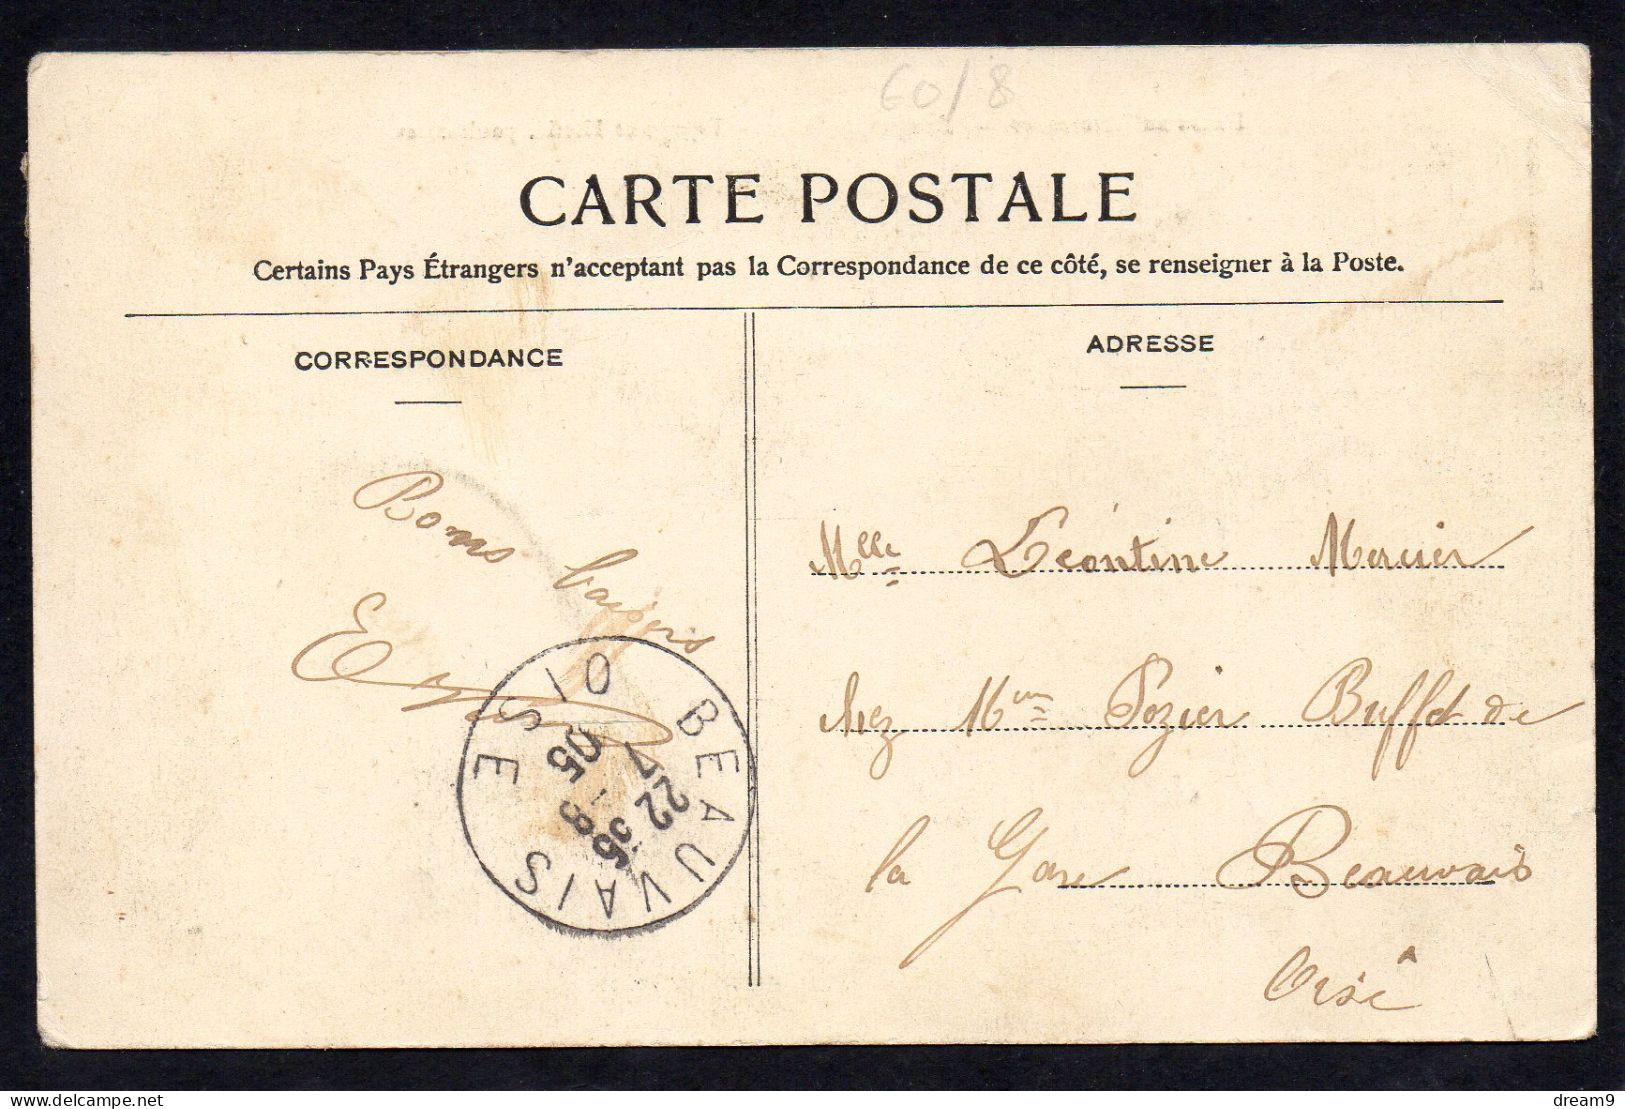 60/8
CARTE POSTALE
Certains Pays Étrangers n'acceptant pas la Correspondance de ce côté, se renseigner à la Poste.
CORRESPONDANCE
ADRESSE
Bons baisers
Mlle Léontine Mercier
chez Mme Pozier Buffet de
la Gare Beauvais
Oise
BEAUVAIS
OISE
22 35
5 - 8
05
delcampe.net
dream9